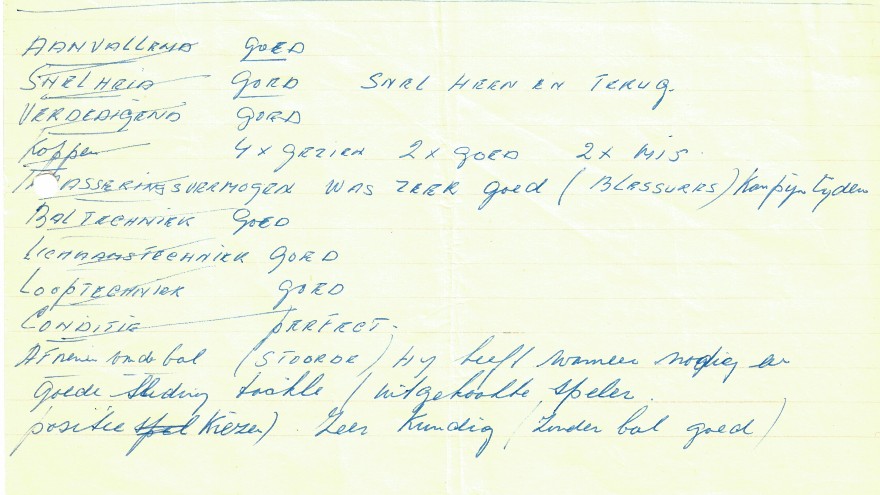 AANVALLEND GOED
SNELHEID GOED SNEL HEEN EN TERUG.
VERDEDIGEND GOED
Koppen 4x GEZIEN 2x GOED 2x MIS.
INCASSERINGSVERMOGEN WAS ZEER goed (BLESSURES) Kan pijn lyden
BALTECHNIEK GOED
LICHAAMSTECHNIEK GOED
LOOPTECHNIEK GOED
CONDITIE PERFECT.
AFnemen v/d bal (STOORDE) Hy heeft wanneer nodig een
goede sliding tackle (uitgekookte speler.
positie spel Kiezen). Zeer Kundig (Zonder bal goed)